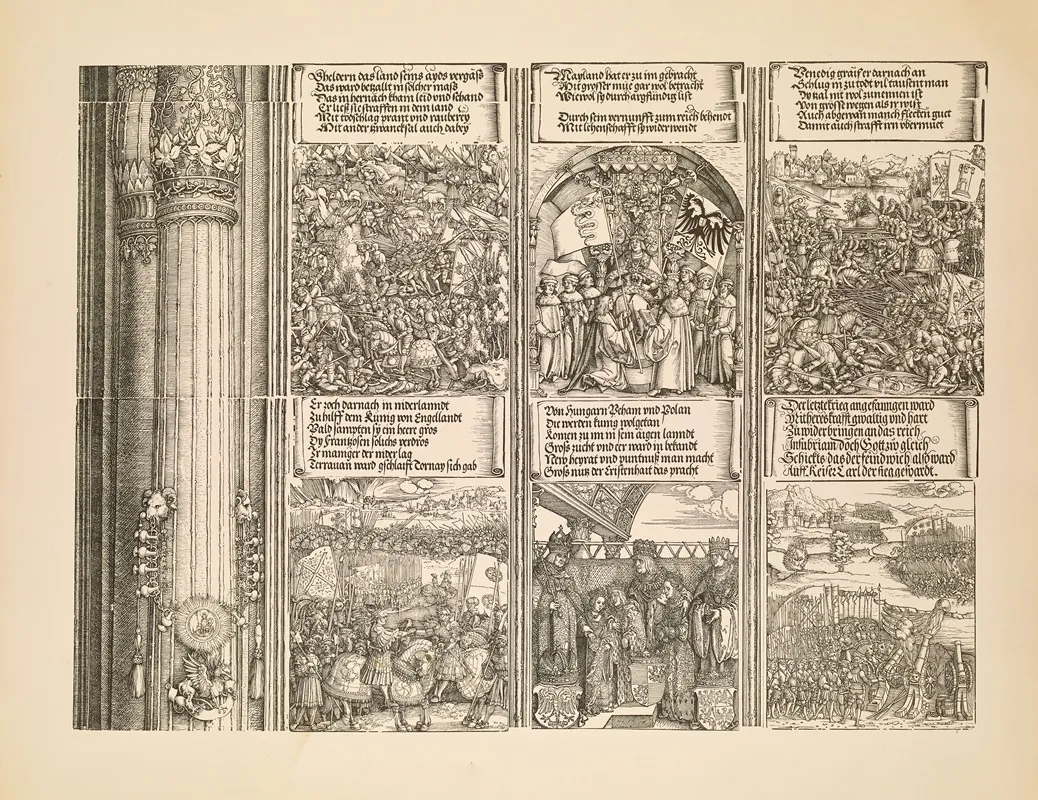 Gheldern das land seins ayds vergäß
Das ward betzallt in sölcher maß
Das in hernach kham leid vnd schand
Er ließ sie straffen in dem land
Mit todschlag prant vnd rauberey
Mit ander zwanckhsel auch dabey
Mayland hat er zu im gebracht
Mit grosser mue gar wol betracht
Wiewol sy durch argfundig list
Durch sein vernunfft zum reich behendt
Mit lehenschafft sy wider wendt
Venedig graiff er darnach an
Schlug in zu todt vil tausent man
Dy zal nit wol zu nennen ist
Von grosse wegen als ir wist
Auch abgewan manch flecken guet
Damit auch strafft irn vbermuet
Er zoch darnach in niderlanndt
Zu hilff dem Künig von Engellandt
Bald sampten sy ein heere gros
Dy Frantzosen solichs verdros
Ir maniger der nider lag
Terrauan ward gschlaifft Dornay sich gab
Von Hungarn Peham vnd Polan
Die werden kunig wolgetan
Komen zu im in sein aigen lanndt
Groß zucht vnd eer ward in bekandt
New heyrat vnd puntnuß man macht
Groß nutz der Cristenhait das pracht
Der letzte krieg angefanngen ward
Mit heereskrafft gwaltig vnd hart
Zu widerbringen an das reich
Insubriam doch Gott zu gleich
Schickts das der feind wich alßward
Auff Keiser Carl der sieg gewardt.